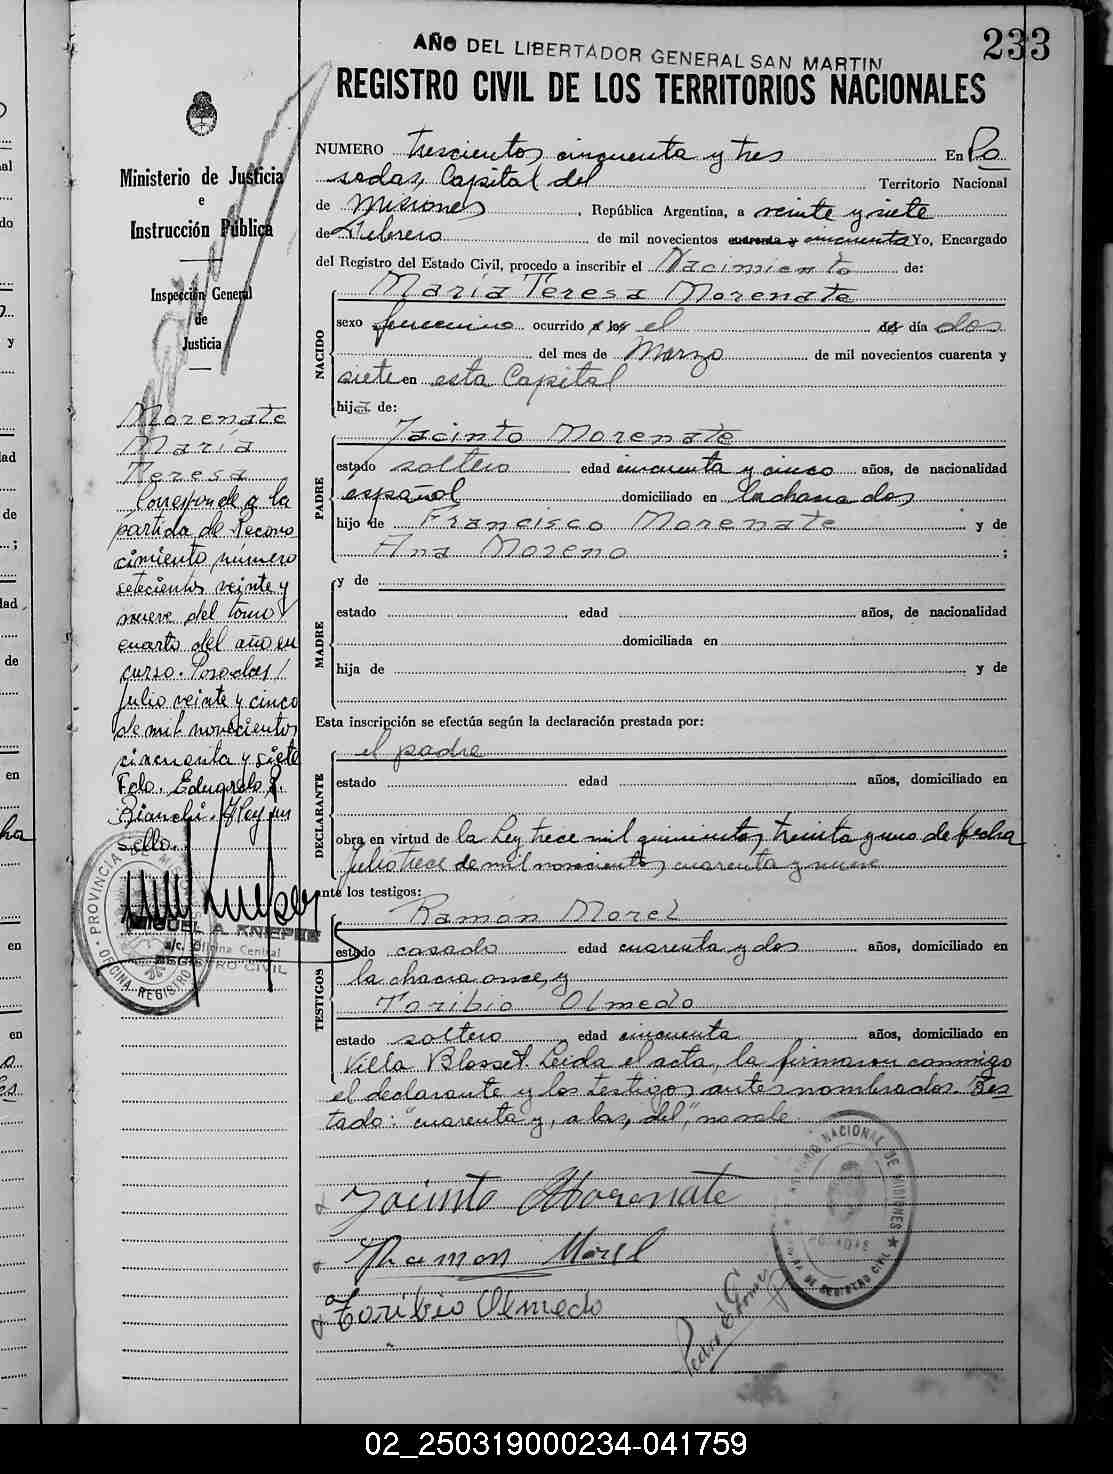 233
AÑO DEL LIBERTADOR GENERAL SAN MARTIN
REGISTRO CIVIL DE LOS TERRITORIOS NACIONALES
Ministerio de Justicia
e
Instrucción Pública
Inspección General
de
Justicia
NUMERO trescientos cincuenta y tres En Po
sadas, Capital del Territorio Nacional
de Misiones, República Argentina, a veinte y siete
de Febrero de mil novecientos cuarenta y cincuenta Yo, Encargado
del Registro del Estado Civil, procedo a inscribir el Nacimiento de:
NACIDO
María Teresa Morenate
sexo femenino ocurrido a las el del día dos
del mes de Marzo de mil novecientos cuarenta y
siete en esta Capital
hija de:
PADRE
Jacinto Morenate
estado soltero edad cincuenta y cinco años, de nacionalidad
español domiciliado en la chacra dos,
hijo de Francisco Morenate y de
Ana Moreno ;
MADRE
y de
estado edad años, de nacionalidad
domiciliada en
hija de y de
Esta inscripción se efectúa según la declaración prestada por:
DECLARANTE
el padre
estado edad años, domiciliado en
obra en virtud de la Ley trece mil quinientos treinta y uno de fecha
Julio trece de mil novecientos cuarenta y nueve
ante los testigos:
TESTIGOS
Ramón Morel
estado casado edad cuarenta y dos años, domiciliado en
la chacra once, y
Toribio Olmedo
estado soltero edad cincuenta años, domiciliado en
Villa Blosset. Leida el acta, la firmaron conmigo
el declarante y los testigos antes nombrados. Tes
tado: "cuarenta y, a las, del", no vale.
Jacinto Morenate
Ramon Morel
Toribio Olmedo
Morenate
María
Teresa
Corresponde a la
partida de Recono
cimiento número
setecientos veinte y
nueve del tomo
cuarto del año en
curso. Posadas,
Julio veinte y cinco
de mil novecientos
cincuenta y siete
Fdo. Eduardo R.
Bianchi. Hay un
sello.
PROVINCIA DE MISIONES
OFICINA REGISTRO CIVIL
MIGUEL A. KNIEPEE
a/c. Oficina Central
REGISTRO CIVIL
NACIONAL DE MISIONES
DE REGISTRO CIVIL
02_250319000234-041759